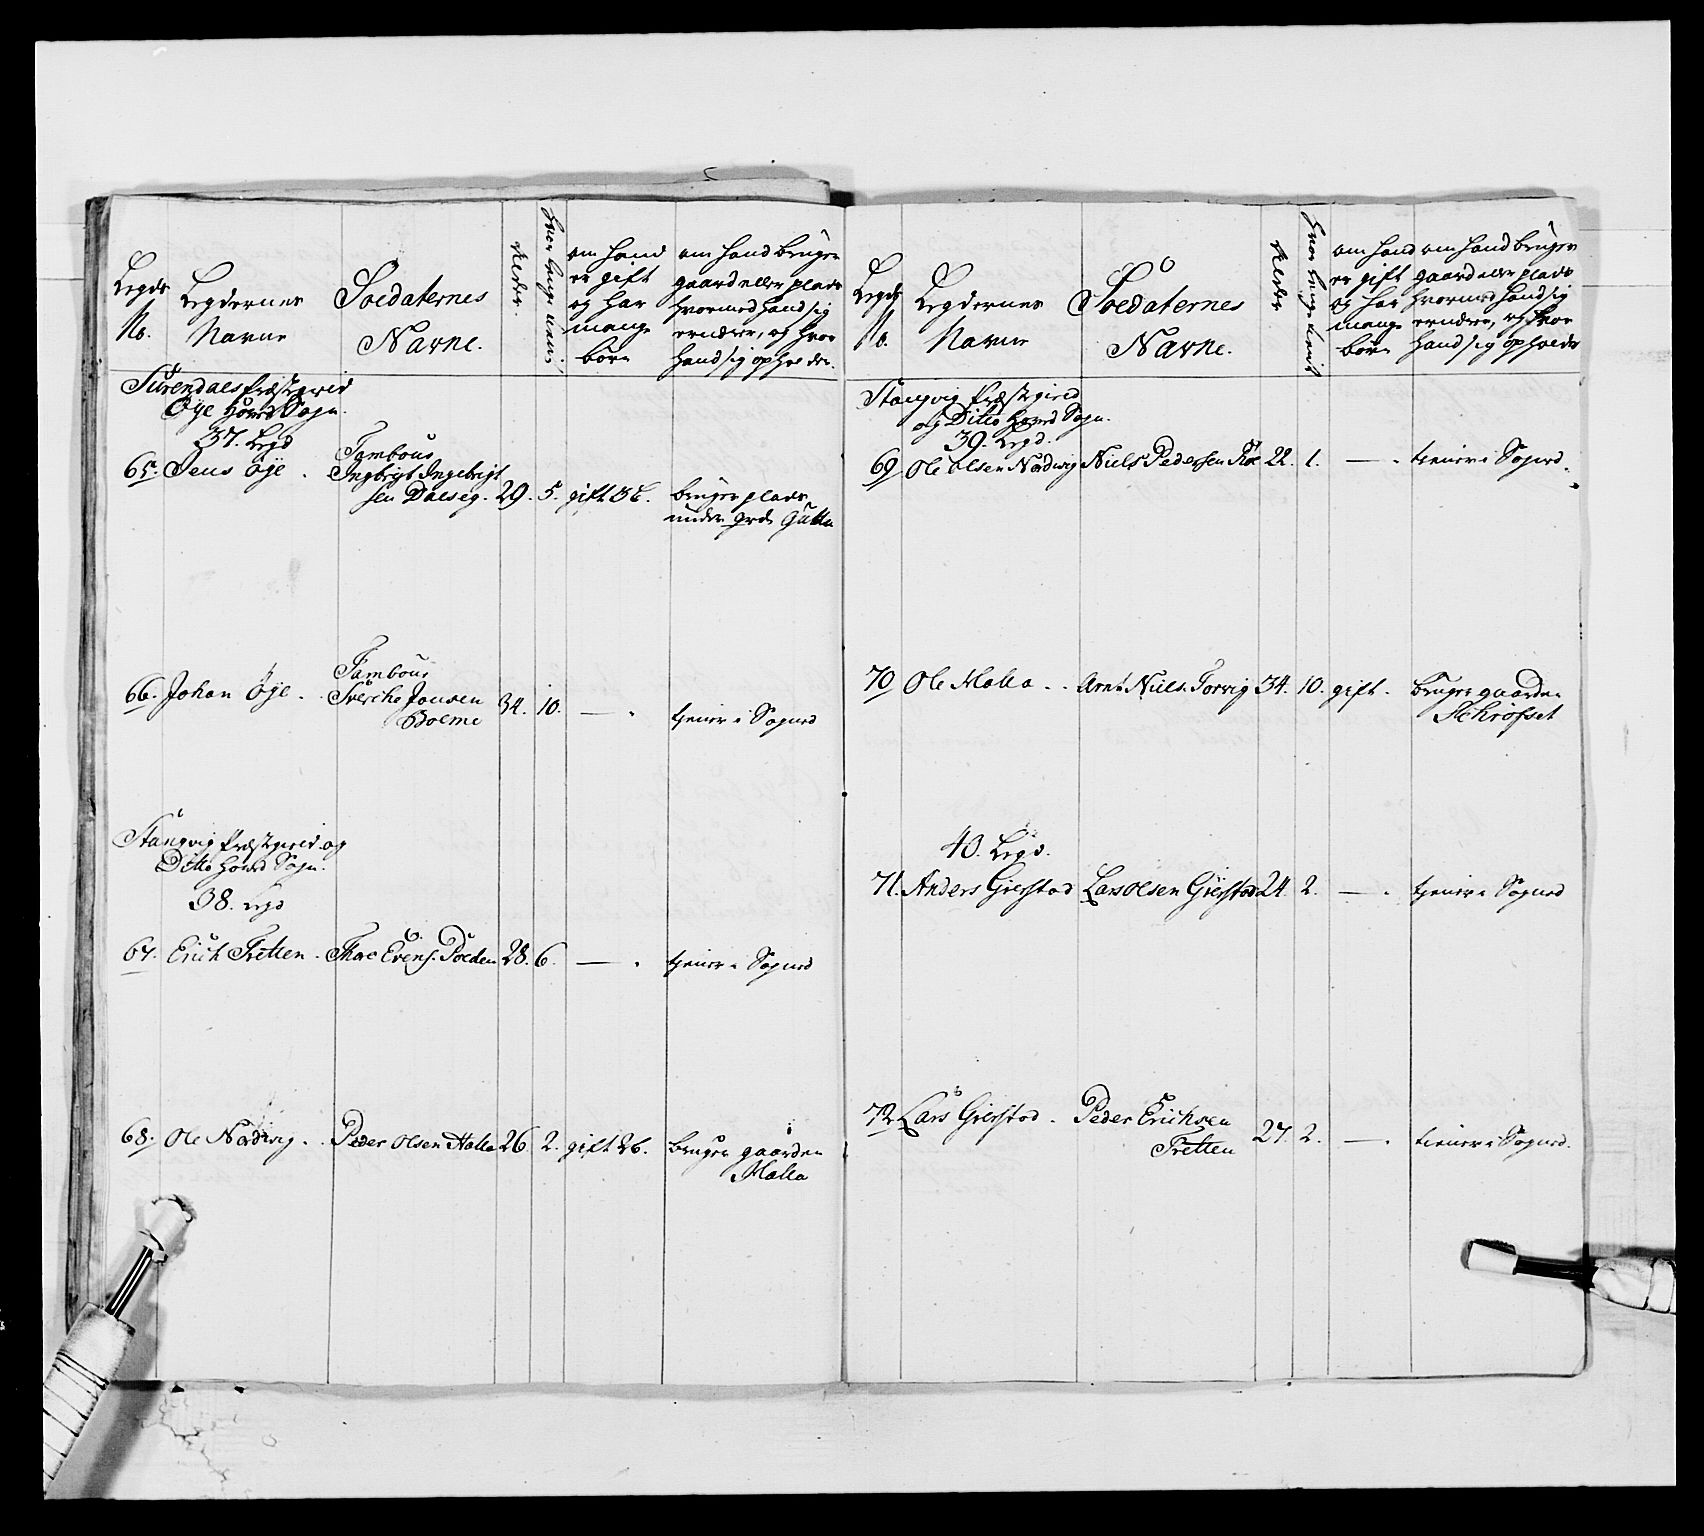 Legds No.
Legdernes Navne
Soldaternes Navne.
Alder.
hvor lenge tient
om hand er gift og har mange börn
om hand bruger gaard eller plads hvormed hand sig ernærer, og hvor hand sig opholder.
Surendals Præstgield
Øye Hoved Sogn.
37. Legd
65. Jens Øye . Tambour Ingbrigt Ingebrigtsen Dalseg. 29. 5. gift 3 b. bruger plads under grd.
66. Johan Øye . Tambour Sverche Jonsen Bolme 34. 10. — . tjener i Sogned
Stangvig Præstgield og
Ditto Hoved Sogn.
38. Legd
67. Erich Tretten . Thor Evens. Polden 28. 6. — . tjener i Sogned
68. Ole Nordvig . Peder Olsen Halla 26 2. gift 2 b. bruger gaarden Malla
Legds No.
Legdernes Navne
Soldaternes Navne.
Alder
hvor lenge tient
om hand er gift og har mange börn
om hand bruger gaard eller plads hvormed hand sig ernærer, og hvor hand sig opholder
Stangvig Præstgield
og Ditto Hoved Sogn.
39. Legd.
69 Ole Olsen Nordvig Niels Pedersen 22. 1. — . tjener i Sogned.
70 Ole Malla . . Arnt Niels. Torvig 34. 10. gift . bruger gaarden
40. Legd.
71. Anders Gierstad Lars Olsen Gierstad 24 2. — . tjener i Sogned
72 Lars Gierstad . Peder Erichsen Tretten 27. 2. — . tiener i Sogned.